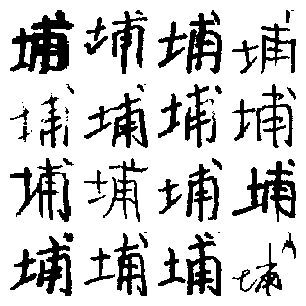 埔埔埔埔
埔埔埔埔
埔埔埔埔
埔埔埔埔